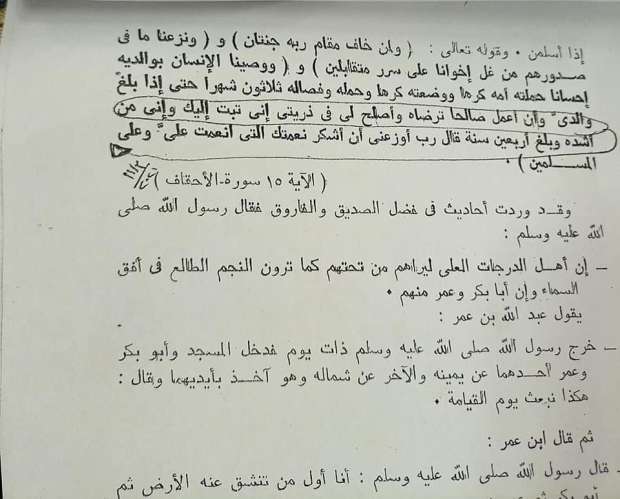 إذا أسلمن . وقوله تعالى : ( وان خاف مقام ربه جنتان ) و ( ونزعنا ما فى
صدورهم من غل إخوانا على سرر متقابلين ) و ( ووصينا الإنسان بوالديه
إحسانا حملته أمه كرها ووضعته كرها وحمله وفصاله ثلاثون شهرا حتى إذا بلغ
والدىّ وأن أعمل صالحا ترضاه وأصلح لى فى ذريتى إنى تبت إليك وإنى من
أشده وبلغ أربعين سنة قال رب أوزعنى أن أشكر نعمتك التى انعمت علىّ وعلى
المسلمين ) .
( الآية ١٥ سورة-الأحقاف )
وقد وردت أحاديث فى فضل الصديق والفاروق فقال رسول الله صلى
الله عليه وسلم :
– إن أهل الدرجات العلى ليراهم من تحتهم كما ترون النجم الطالع فى أفق
السماء وإن أبا بكر وعمر منهم .
يقول عبد الله بن عمر :
– خرج رسول الله صلى الله عليه وسلم ذات يوم فدخل المسجد وأبو بكر
وعمر أحدهما عن يمينه والآخر عن شماله وهو آخذ بأيديهما وقال :
هكذا نبعث يوم القيامة .
ثم قال ابن عمر :
– قال رسول الله صلى الله عليه وسلم : أنا أول من تنشق عنه الأرض ثم